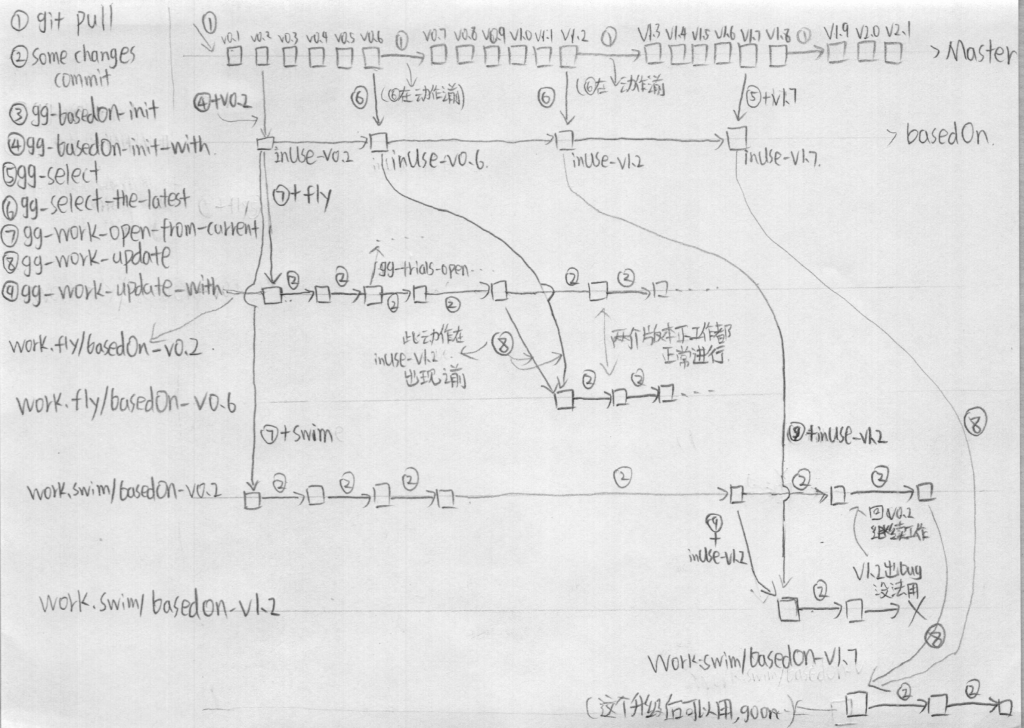 ① git pull
② some changes
commit
③ gg-basedOn-init
④ gg-basedOn-init-with
⑤ gg-select
⑥ gg-select-the-latest
⑦ gg-work-open-from-current
⑧ gg-work-update
⑨ gg-work-update-with
①
v0.1 v0.2 v0.3 v0.4 v0.5 v0.6 ① v0.7 v0.8 v0.9 v1.0 v1.1 v1.2 ① v1.3 v1.4 v1.5 v1.6 v1.7 v1.8 ① v1.9 v2.0 v2.1
Master
④+v0.2
⑥
(⑥在①动作之前)
⑥
(⑥在①动作之前
⑤+v1.7
basedOn
inUse-v0.2
inUse-v0.6
inUse-v1.2
inUse-v1.7
⑦+fly
gg-trials-open
② ② ② ② ② ②
work.fly/basedOn-v0.2
此动作在
inUse-v1.2
出现之前
⑧
两个版本工作都
正常进行
② ②
work.fly/basedOn-v0.6
⑦+swim
⑨+inUse-v1.2
⑧
work.swim/basedOn-v0.2
② ② ② ② ② ②
⑨
+
inUse-v1.2
回v0.2
继续工作
v1.2出bug
没法用
work.swim/basedOn-v1.2
② X
⑧
work.swim/basedOn-v1.7
(这个升级后可以用,goon.)
② ②